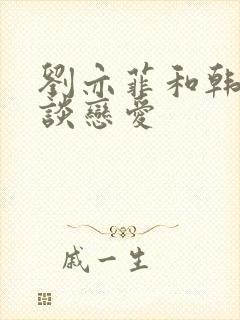 劉亦菲和韩
談戀愛
戚一生